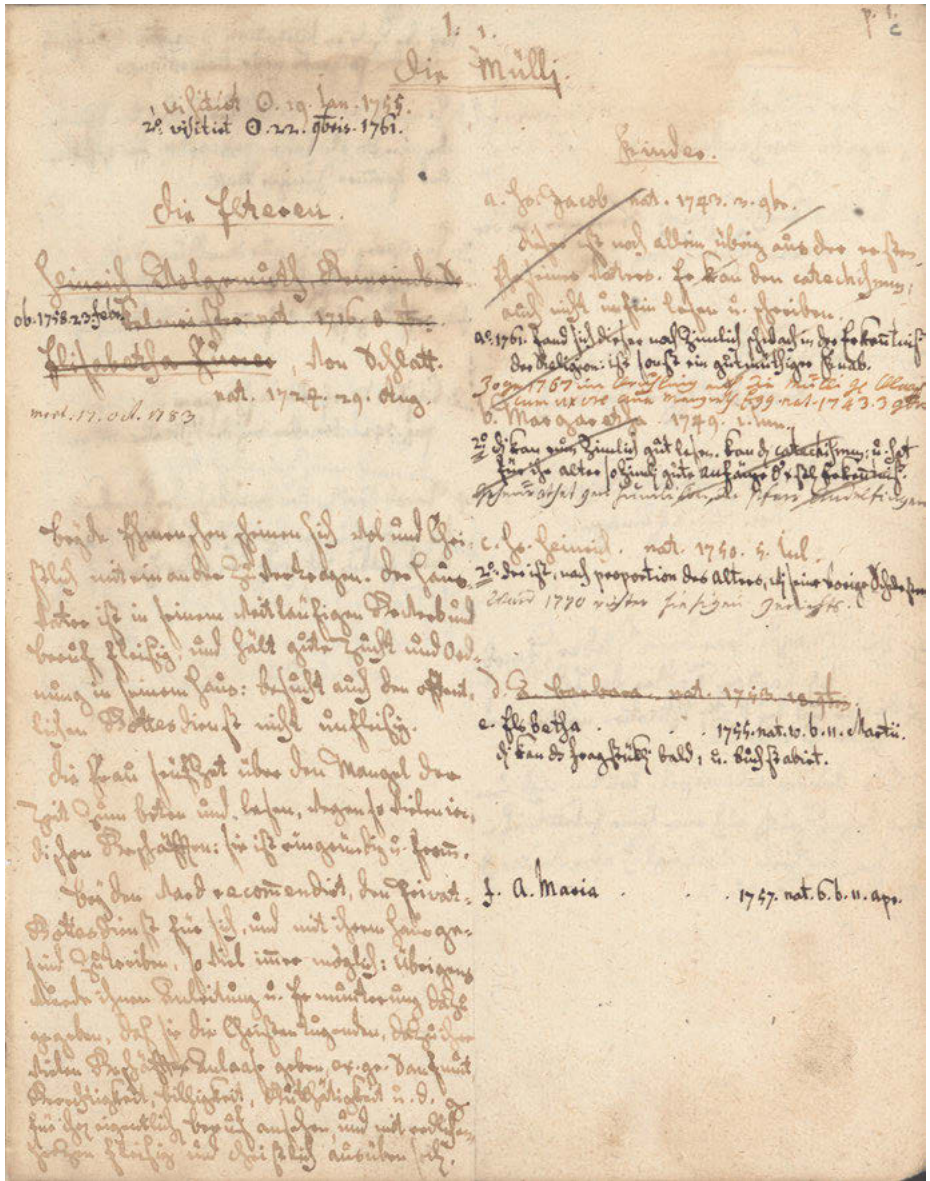 1. 1.
p. 1.
c
Die Mülli.
1. visitiert ⊙. 19. Jan. 1755.
2º. visitiert ⊙. 22. 9bris. 1761.
Die Elteren.
Heinrich Wolgemuth
ob. 1758. 23. febr. nat. 1716. 8
Elisabetha , von Schlatt.
nat. 1724. 29. Aug.
mort. 17. oct. 1783
Beÿde Ehmenschen scheinen sich wol und Chri-
stlich mit ein ander zu vertragen. Der Haus-
vatter ist in seinem weitläufigen Gewerb und
beruf fleisig, und hält gute Zucht und Ord-
nung in seinem Haus: besucht auch den öffent-
lichen Gottesdienst nicht unfleisig.
Die Frau seufzet über den Mangel der
Zeit zum beten und lesen, wegen so vielen ir-
dischen Geschäfften: sie ist eingezogen u. from̄.
Beÿden ward recom̄endirt, den Privat-
Gottesdienst für sich, und mit ihrem Hausge-
sind zutreiben, so viel im̄er möglich: übrigens
wurde ihnen Anleitung u. Ermunterung dazu
gegeben, daß sie die Christentugenden, dazu ihre
vielen Geschäffte Anlaase geben, ex. gr. Sanftmut
Gerechtigkeit, billigkeit, Gutthätigkeit u. d. g.
für ihren eigentlich beruf ansehen, und mit redlichem
herzen fleisig und christlich ausüben
Kinder.
a. Hs. Jacob nat. 1743. 3. 9br.
dieser ist noch allein übrig aus der ersten
Ehe seines Vaters. Er kan den catechismus,
auch nicht unfein lesen u. schreiben.
aº. 1761. fand sich dieser noch zimlich schwach in der Erkentniß
der Religion: ist sonst ein gutmüthiger Knab.
Zog 1767 im Frühling auf die Mülli
cum uxore nat. 1743. 3 9br.
b. Margaretha 1749. 1. Jun.
2º di kan nun zimlich gut lesen. kan dz catechismus, u. hat
für ihr alter so zimli gute anfänge Erkentniß.
c. Hs. Heinrich. nat. 1750. 5. Jul.
2º. der ist, nach proportion des alters, wie seine vorige Schwester
Ward 1770
d. Barbara nat. 1753. 18.
e. Elsbetha . . . 1755. nat. u. b. 11. Martii.
di kan ds fragstükli bald, u. buchstabirt.
f. A. Maria . . . . 1757. nat. 6. b. 11. apr.